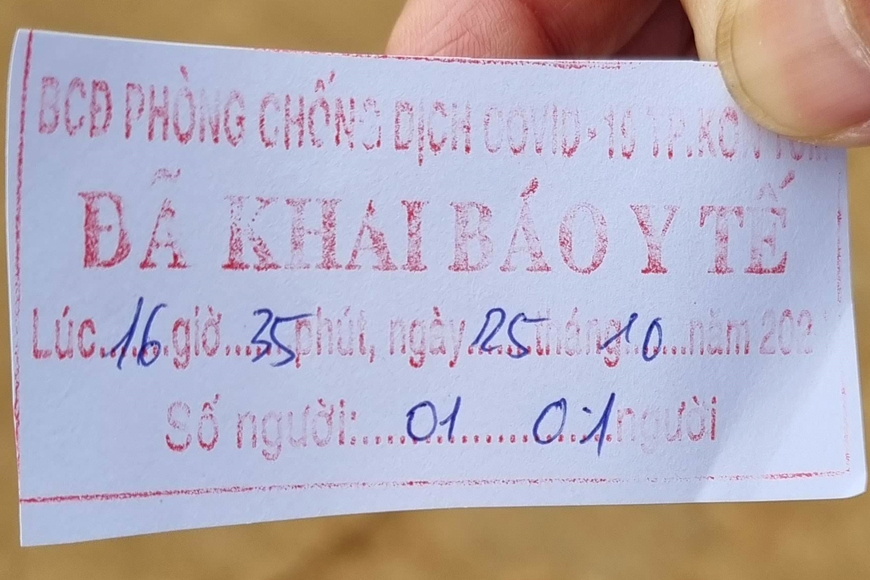 BCĐ PHÒNG CHỐNG DỊCH COVID-19 TP.
ĐÃ KHAI BÁO Y TẾ
Lúc..16..giờ...35phút, ngày.25..tháng.10...năm 202
Số người:.....01......01.người